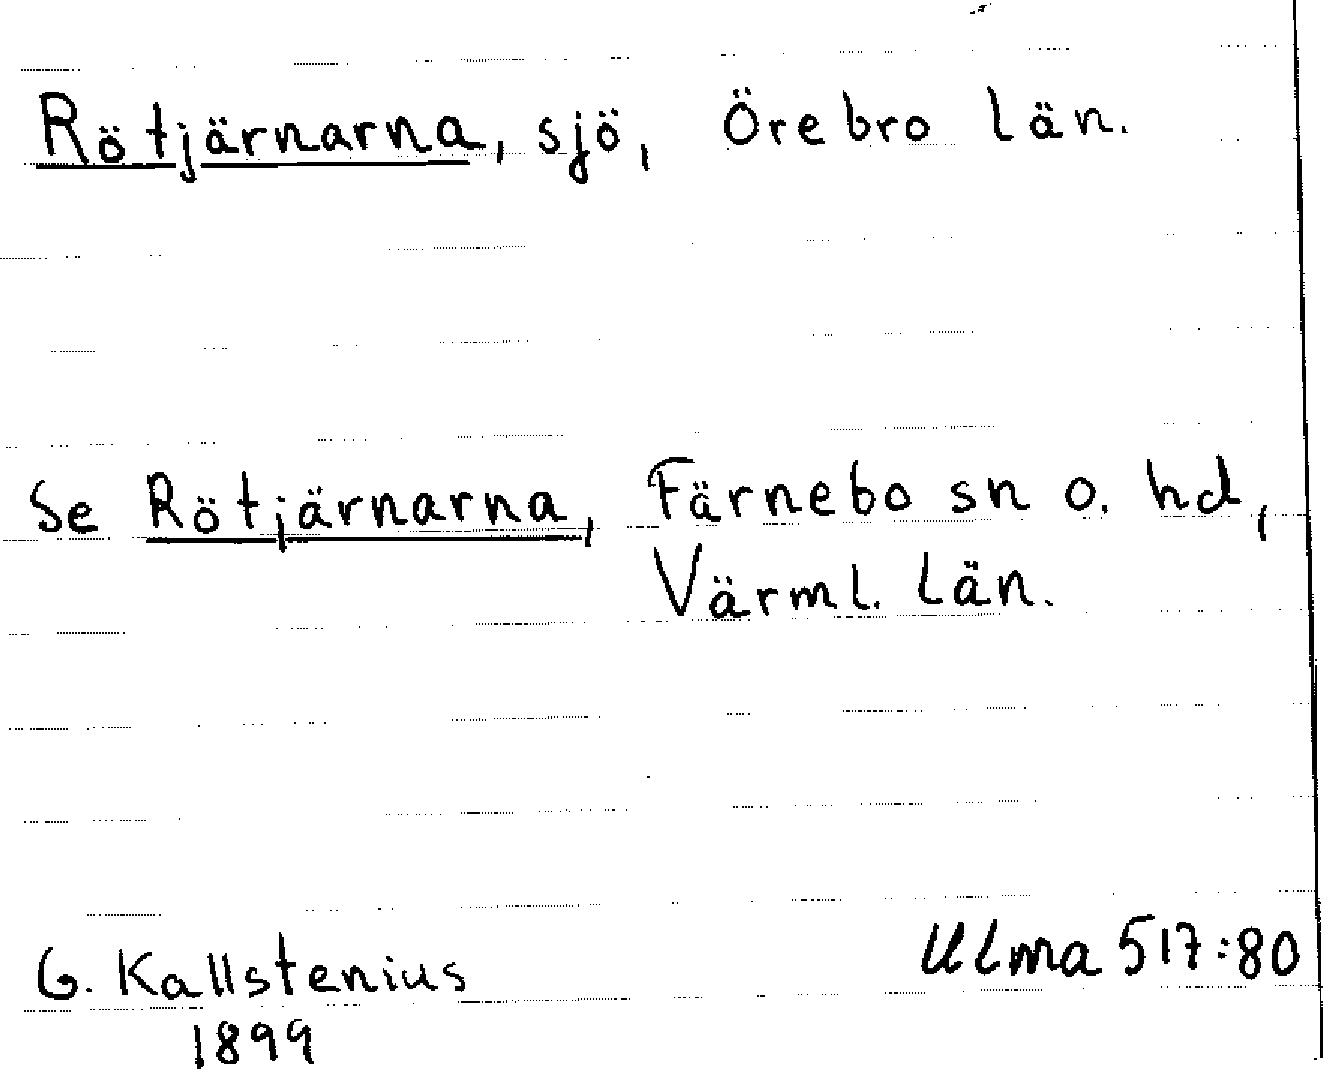 Rötjärnarna, sjö, Örebro län.
Se Rötjärnarna, Färnebo sn o. hd,
Värml. län.
G. Kallstenius
1899
Ulma 517:80